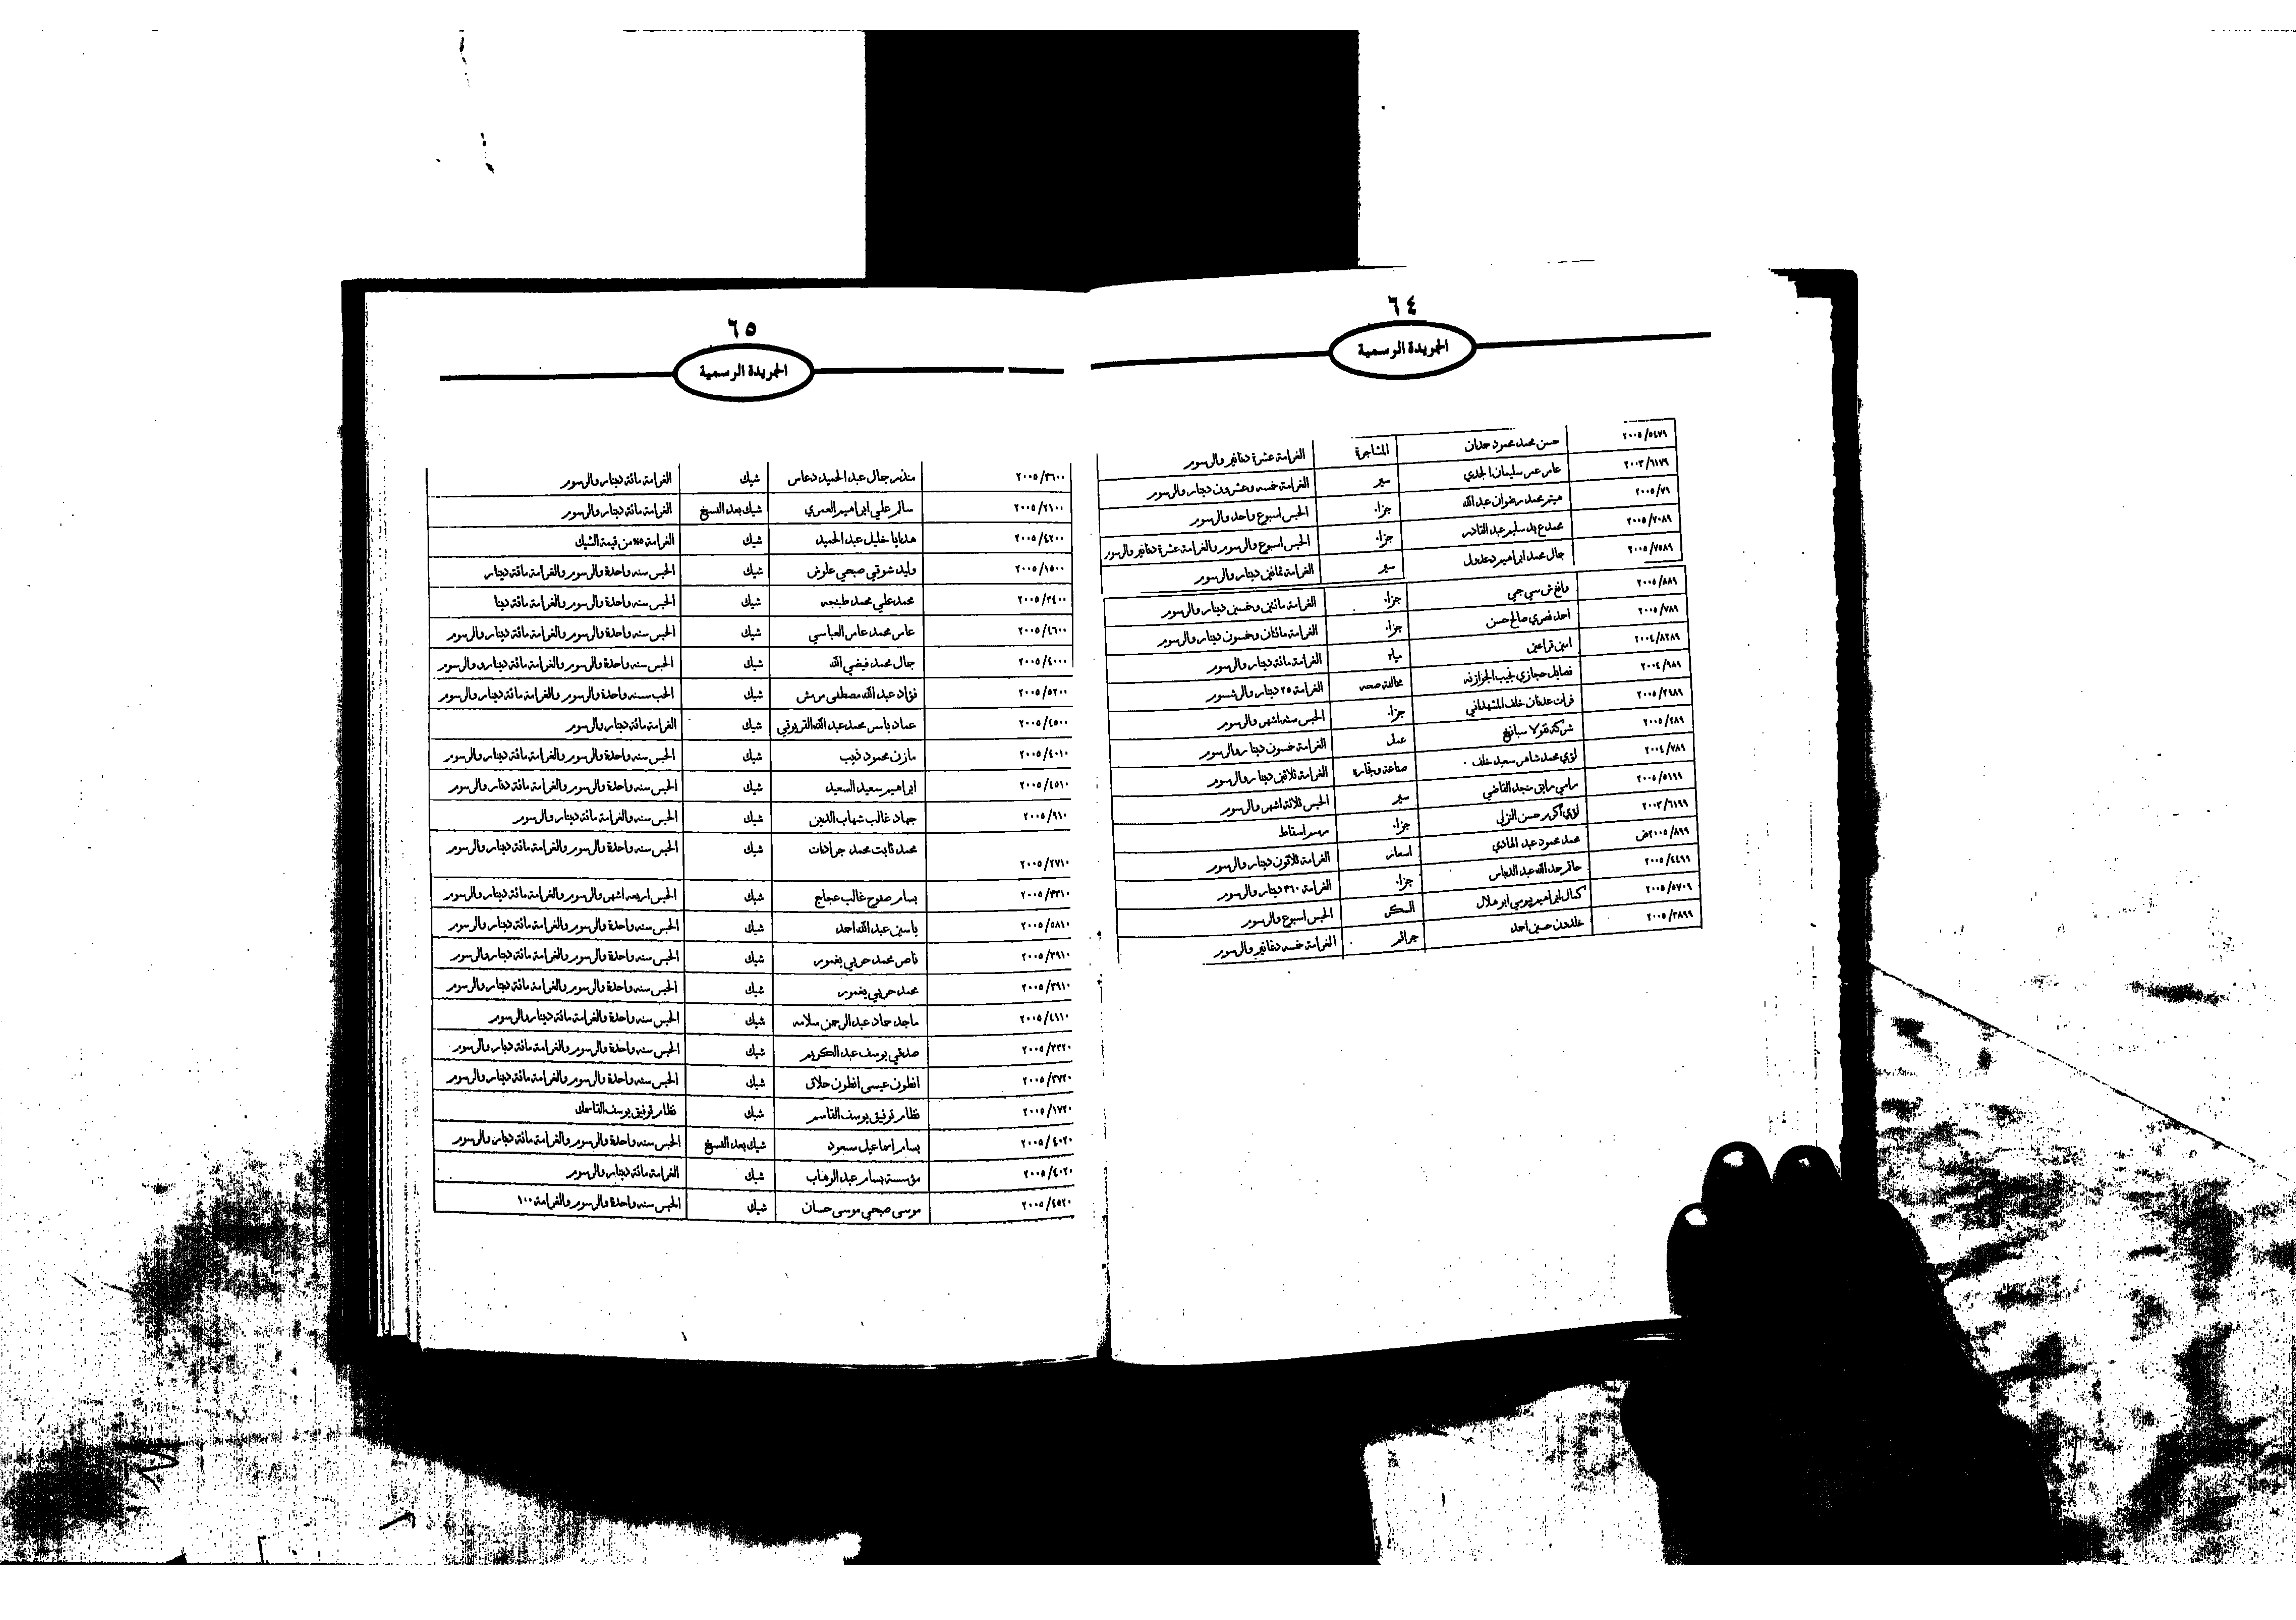 ٦٤
الجريدة الرسمية
٢٠٠٥/٥٤٧٩ حسن محمد محمود حمدان المشاجرة الغرامة عشرة دنانير والرسوم
٢٠٠٣/٦١٧٩ عامر عمر سليمان الجدي سير الغرامة خمسه وعشرون دينار والرسوم
٢٠٠٥/٧٩ هيثم محمد رضوان عبد الله جزاء الحبس اسبوع واحد والرسوم
٢٠٠٥/٧٠٨٩ محمد عيد سليم عبد القادر جزاء الحبس اسبوع والرسوم والغرامة عشرة دنانير والرسوم
٢٠٠٥/٧٥٨٩ جمال محمد ابراهيم دعدول سير الغرامة ثمانين دينار والرسوم
٢٠٠٥/٨٨٩ وانغ ش سي جي جزاء الغرامة مائتين وخمسين دينار والرسوم
٢٠٠٥/٧٨٩ احمد نصري صالح حسن جزاء الغرامة مائتان وخمسون دينار والرسوم
٢٠٠٤/٨٢٨٩ امين قراعين مياه الغرامة مائة دينار والرسوم
٢٠٠٤/٩٨٩ فصايل حجازي نجيب الجوازنه مخالفة صحه الغرامة ٢٥ دينار والرسوم
٢٠٠٥/٢٩٨٩ فرات عدنان خلف المشهداني جزاء الحبس سته اشهر والرسوم
٢٠٠٥/٢٨٩ شركة نقولا سبانغ عمل الغرامة خمسون دينار والرسوم
٢٠٠٤/٧٨٩ لؤي محمد شاهر سعيد خلف صناعة وتجارة الغرامة ثلاثين دينار والرسوم
٢٠٠٥/٥١٩٩ رامي راتق منجد القاضي سير الحبس ثلاثة اشهر والرسوم
٢٠٠٣/٦١٩٩ لؤي اكرم حسن النزلي جزاء رسم اسقاط
٢٠٠٥/٨٩٩ض محمد محمود عبد الهادي اسعار الغرامة ثلاثون دينار والرسوم
٢٠٠٥/٤٤٩٩ حاتم حمد الله عبد الدباس جزاء الغرامة ٣٦٠ دينار والرسوم
٢٠٠٥/٥٧٠٩ كمال ابراهيم يوسي ابو ملال السكر الحبس اسبوع والرسوم
٢٠٠٥/٣٨٩٩ خلدون حسين احمد جرائم الغرامة خمسه دنانير والرسوم
٦٥
الجريدة الرسمية
٢٠٠٥/٣٦٠٠ منذر جمال عبد الحميد دعاس شيك الغرامة مائة دينار والرسوم
٢٠٠٥/٢١٠٠ سالم علي ابراهيم العمري شيك بعد النسخ الغرامة مائة دينار والرسوم
٢٠٠٥/٤٢٠٠ هدايا خليل عبد الحميد شيك الغرامة ٥% من قيمة الشيك
٢٠٠٥/١٥٠٠ وليد شوقي صبحي علوش شيك الحبس سنه واحدة والرسوم والغرامة مائة دينار
٢٠٠٥/٢٤٠٠ محمد علي محمد طبنجه شيك الحبس سنه واحدة والرسوم والغرامة مائة دينا
٢٠٠٥/٤٦٠٠ عامر محمد عامر العباسي شيك الحبس سنه واحدة والرسوم والغرامة مائة دينار والرسوم
٢٠٠٥/٤٠٠٠ جمال محمد فيضي الله شيك الحبس سنه واحدة والرسوم والغرامة مائة دينارو والرسوم
٢٠٠٥/٥٢٠٠ فؤاد عبد الله مصطفى مرش شيك الحب سسنه واحدة والرسوم والغرامة مائة دينار والرسوم
٢٠٠٥/٤٥٠٠ عماد ياسر محمد عبد الله القريوتي شيك الغرامة مائة دينار والرسوم
٢٠٠٥/٤٠١٠ مازن محمود ذيب شيك الحبس سنه واحدة والرسوم والغرامة مائة دينار والرسوم
٢٠٠٥/٤٥١٠ ابراهيم سعيد السعيد شيك الحبس سنه واحدة والرسوم والغرامة مائة دنار والرسوم
٢٠٠٥/٩١٠ جهاد غالب شهاب الدين شيك الحبس سنه والغرامة مائة دينار والرسوم
٢٠٠٥/٢٧١٠ محمد ثابت محمد جرادات شيك الحبس سنه واحدة والرسوم والغرامة مائة دينار والرسوم
٢٠٠٥/٣٣١٠ بسام صدوح غالب عجاج شيك الحبس اربعه اشهر والرسوم والغرامة مائة دينار والرسوم
٢٠٠٥/٥٨١٠ ياسين عبد الله احمد شيك الحبس سنه واحدة والرسوم والغرامة مائة دينار والرسوم
٢٠٠٥/٣٩١٠ ناصر محمد حربي يغمور شيك الحبس سنه واحدة والرسوم والغرامة مائة دينار والرسوم
٢٠٠٥/٣٩١٠ محمد حربي يغمور شيك الحبس سنه واحدة والرسوم والغرامة مائة دينار والرسوم
٢٠٠٥/٤١١٠ ماجد حماد عبد الرحمن سلامه شيك الحبس سنه واحدة والغرامة مائة دينار والرسوم
٢٠٠٥/٣٣٢٠ صدقي يوسف عبد الكريم شيك الحبس سنه واحدة والرسوم والغرامة مائة دينار والرسوم
٢٠٠٥/٣٧٢٠ انطون عيسى انطون حلاق شيك الحبس سنه واحدة والرسوم والغرامة مائة دينار والرسوم
٢٠٠٥/١٧٢٠ نظام توفيق يوسف القاسم شيك نظام توفيق يوسف القاسمك
٢٠٠٥/٤٠٢٠ بسام اسماعيل مسعود شيك بعد النسخ الحبس سنه واحدة والرسوم والغرامة مائة دينار والرسوم
٢٠٠٥/٤٠٢٠ مؤسسة بسام عبد الوهاب شيك الغرامة مائة دينار والرسوم
٢٠٠٥/٤٥٢٠ موسى صبحي موسى حسان شيك الحبس سنه واحدة والرسوم والغرامة ١٠٠